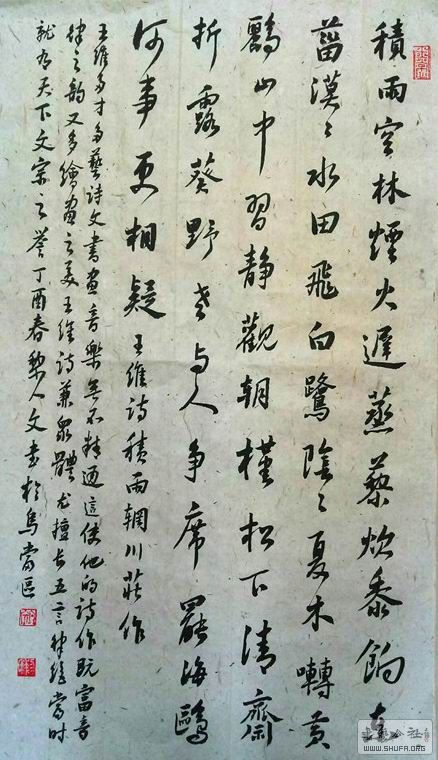 積雨空林煙火遲蒸藜炊黍餉東
菑漠〻水田飛白鷺陰〻夏木囀黃
鸝山中習靜觀朝槿松下清齋
折露葵野老与人爭席罷海鷗
何事更相疑 王維詩積雨輞川莊作
王維多才多藝詩文書画音樂無不精通這使他的詩作既富音
律之韵又多繪畫之美王維詩兼眾體尤擅長五言律絕當時
就有天下文宗之譽丁酉春黎人文書於烏當區
WWW.SHUFA.ORG